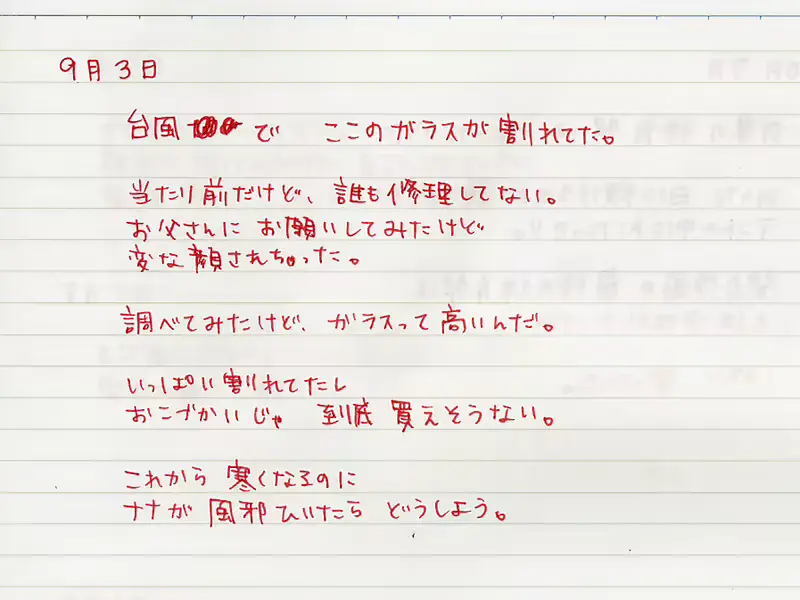 9月3日
台風で ここのガラスが割れてた。
当たり前だけど、誰も修理してない。
お父さんにお願いしてみたけど
変な顔されちゃった。
調べてみたけど、ガラスって高いんだ。
いっぱい割れてたし
おこづかいじゃ 到底買えそうない。
これから寒くなるのに
ナナが風邪ひいたら どうしよう。